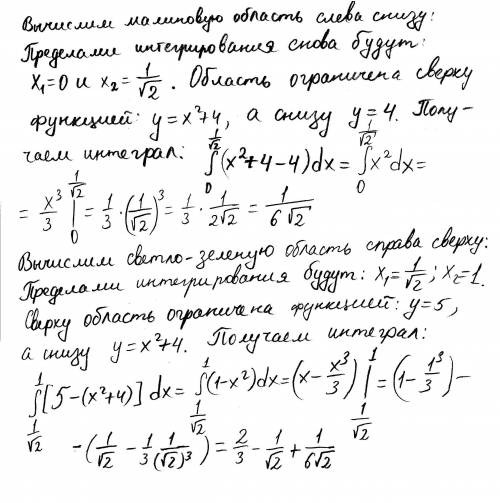 Вычислим малиновую область слева снизу:
Пределами интегрирования снова будут:
x₁=0 и x₂=1/√2. Область ограничена сверху
функцией: y=x²+4, а снизу y=4. Полу-
чаем интеграл: ∫₀^(1/√2) (x²+4-4)dx = ∫₀^(1/√2) x²dx =
= x³/3 |₀^(1/√2) = 1/3·(1/√2)³ = 1/3·1/(2√2) = 1/(6√2)
Вычислим светло-зеленую область справа сверху:
Пределами интегрирования будут: x₁=1/√2; x₂=1.
Сверху область ограничена функцией: y=5,
а снизу y=x²+4. Получаем интеграл:
∫_(1/√2)^1 [5-(x²+4)]dx = ∫_(1/√2)^1 (1-x²)dx = (x-x³/3)|_(1/√2)^1 = (1-1³/3)-
-(1/√2-1/3·1/(√2)³) = 2/3-1/√2+1/(6√2)